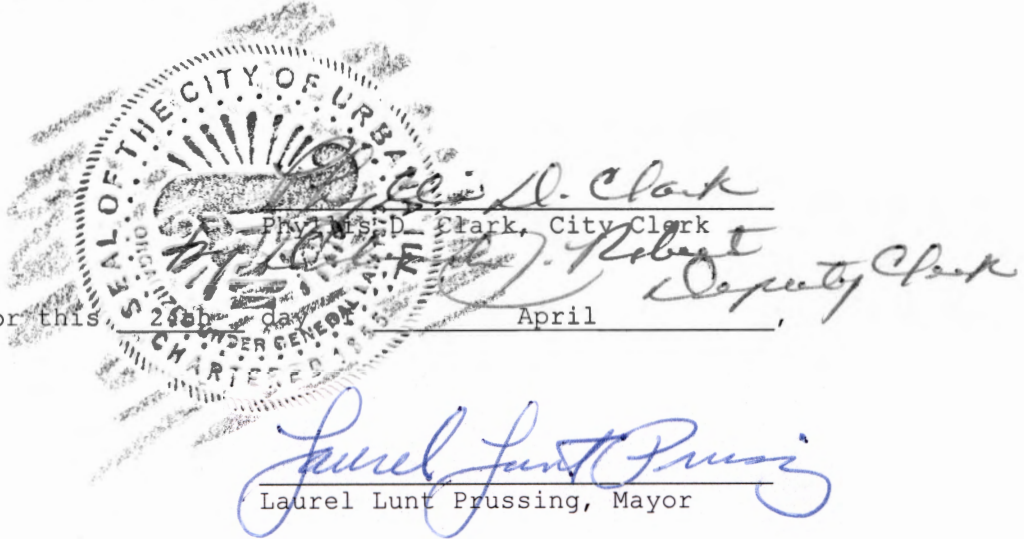 SEAL OF THE CITY OF URBANA
UNDER GENERAL LAW
CHARTERED
Phyllis D. Clark
Phyllis D. Clark, City Clerk
By J. Robert
Deputy Clerk
or this 24th day April,
Laurel Lunt Prussing
Laurel Lunt Prussing, Mayor